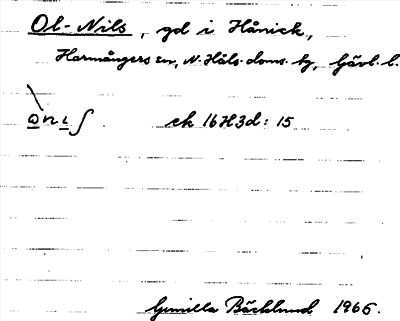 Ol-Nils, gd i Hånick,
Harmångers sn, N. Häls. doms. tg, Gävl. l.
ek 16H3d: 15
Gunilla Bäcklund 1966.